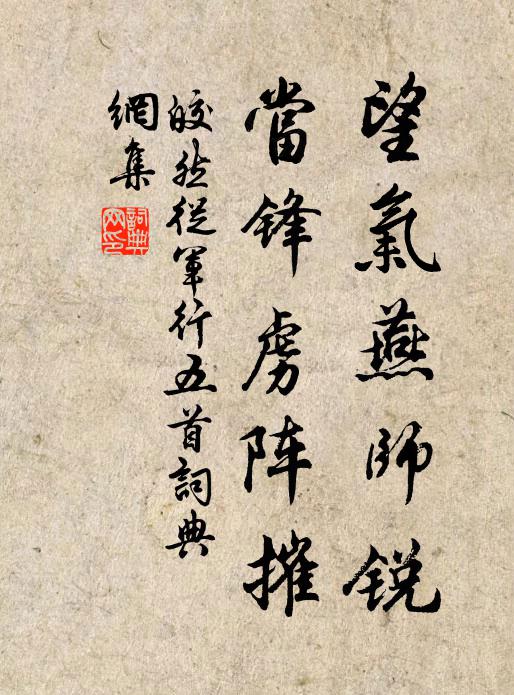 望氣燕師銳
當鋒虜阵摧
皎然從軍行五首詞典
網集
詞典
网印